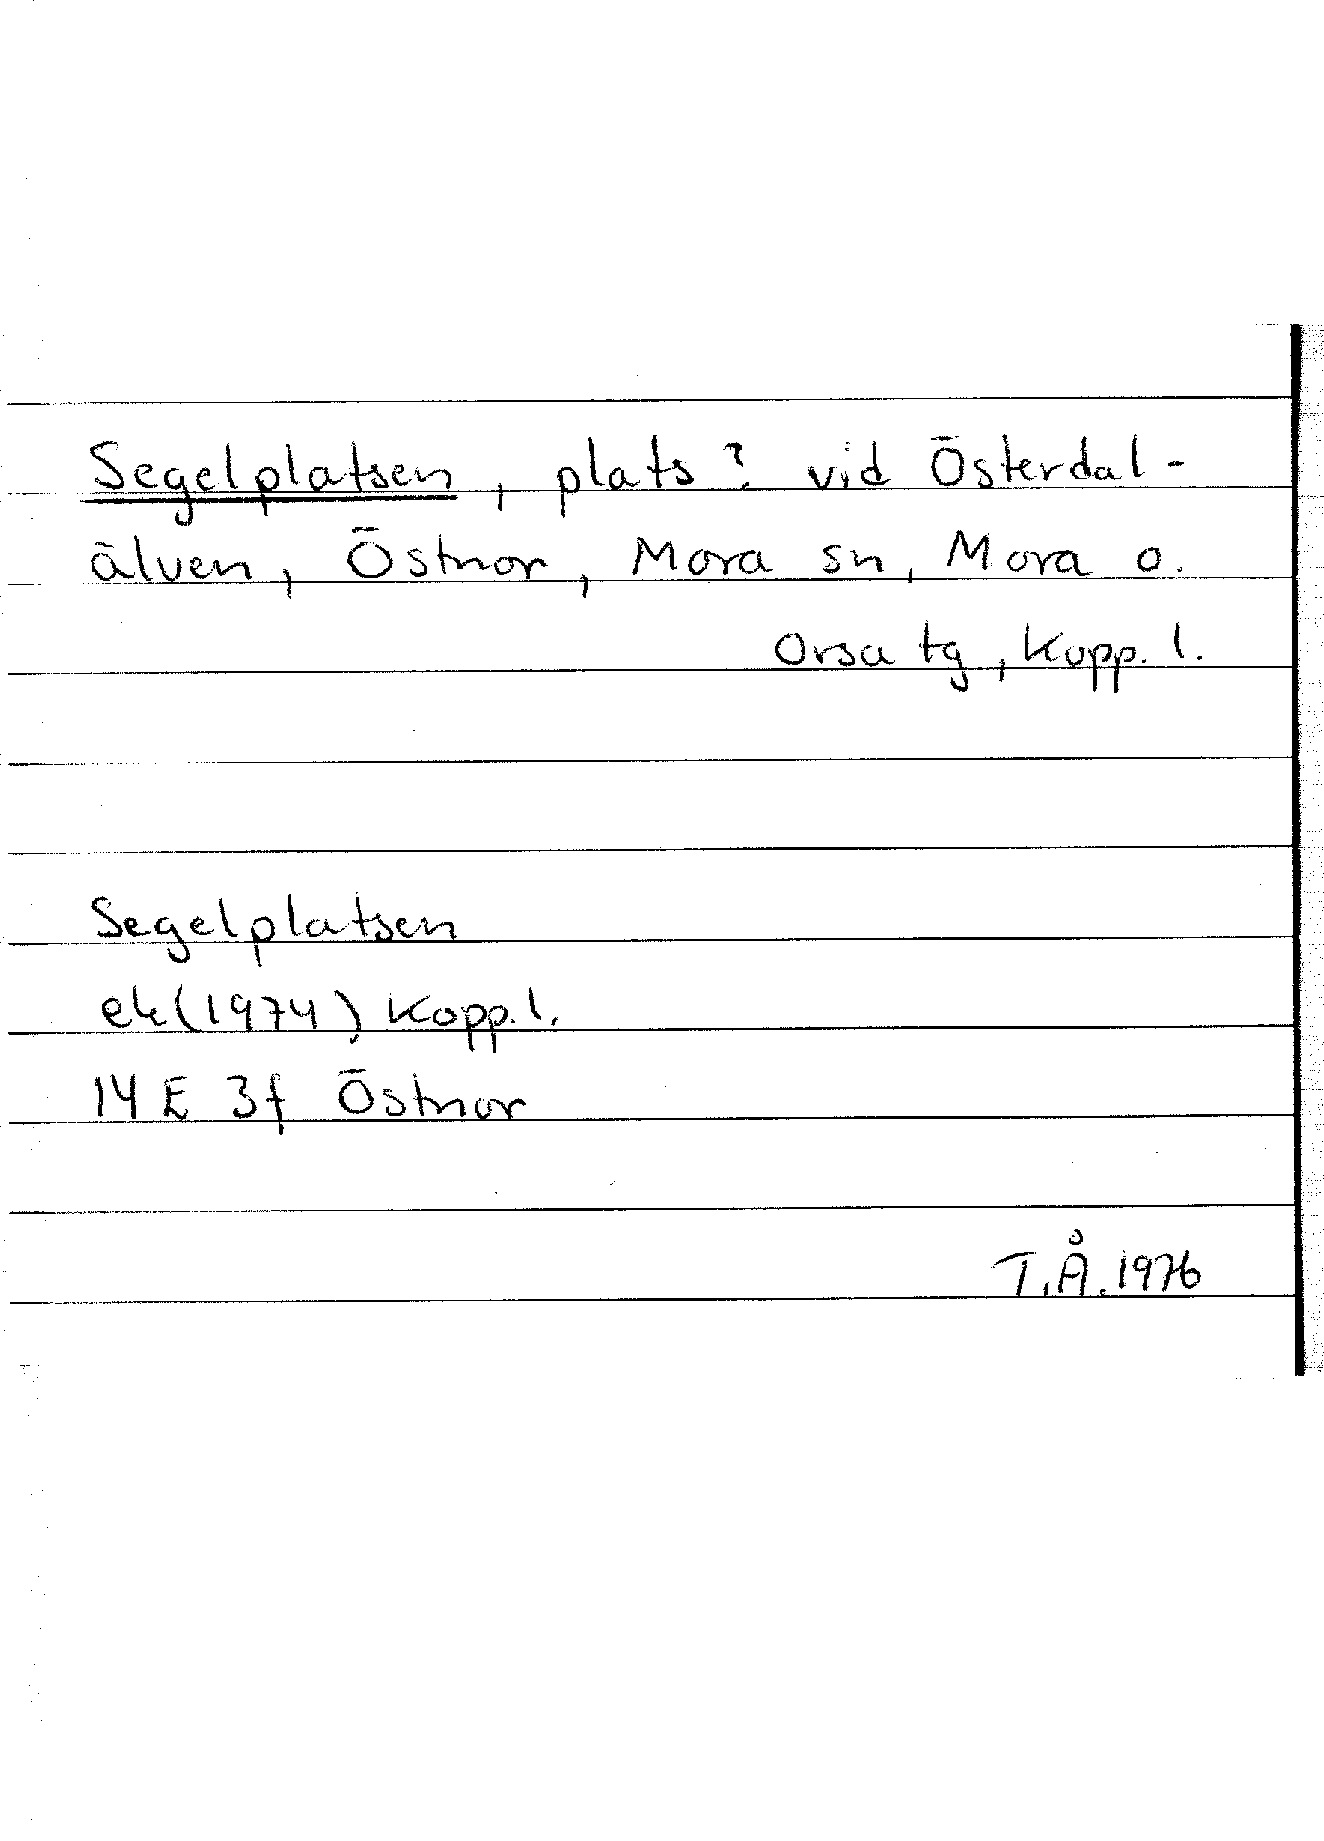 Segelplatsen, plats? vid Österdal-
älven, Östnor, Mora sn, Mora o.
Orsa tg, Kopp. l.
Segelplatsen
ek (1974) Kopp. l.
14 E 3f Östnor
T.Å. 1976